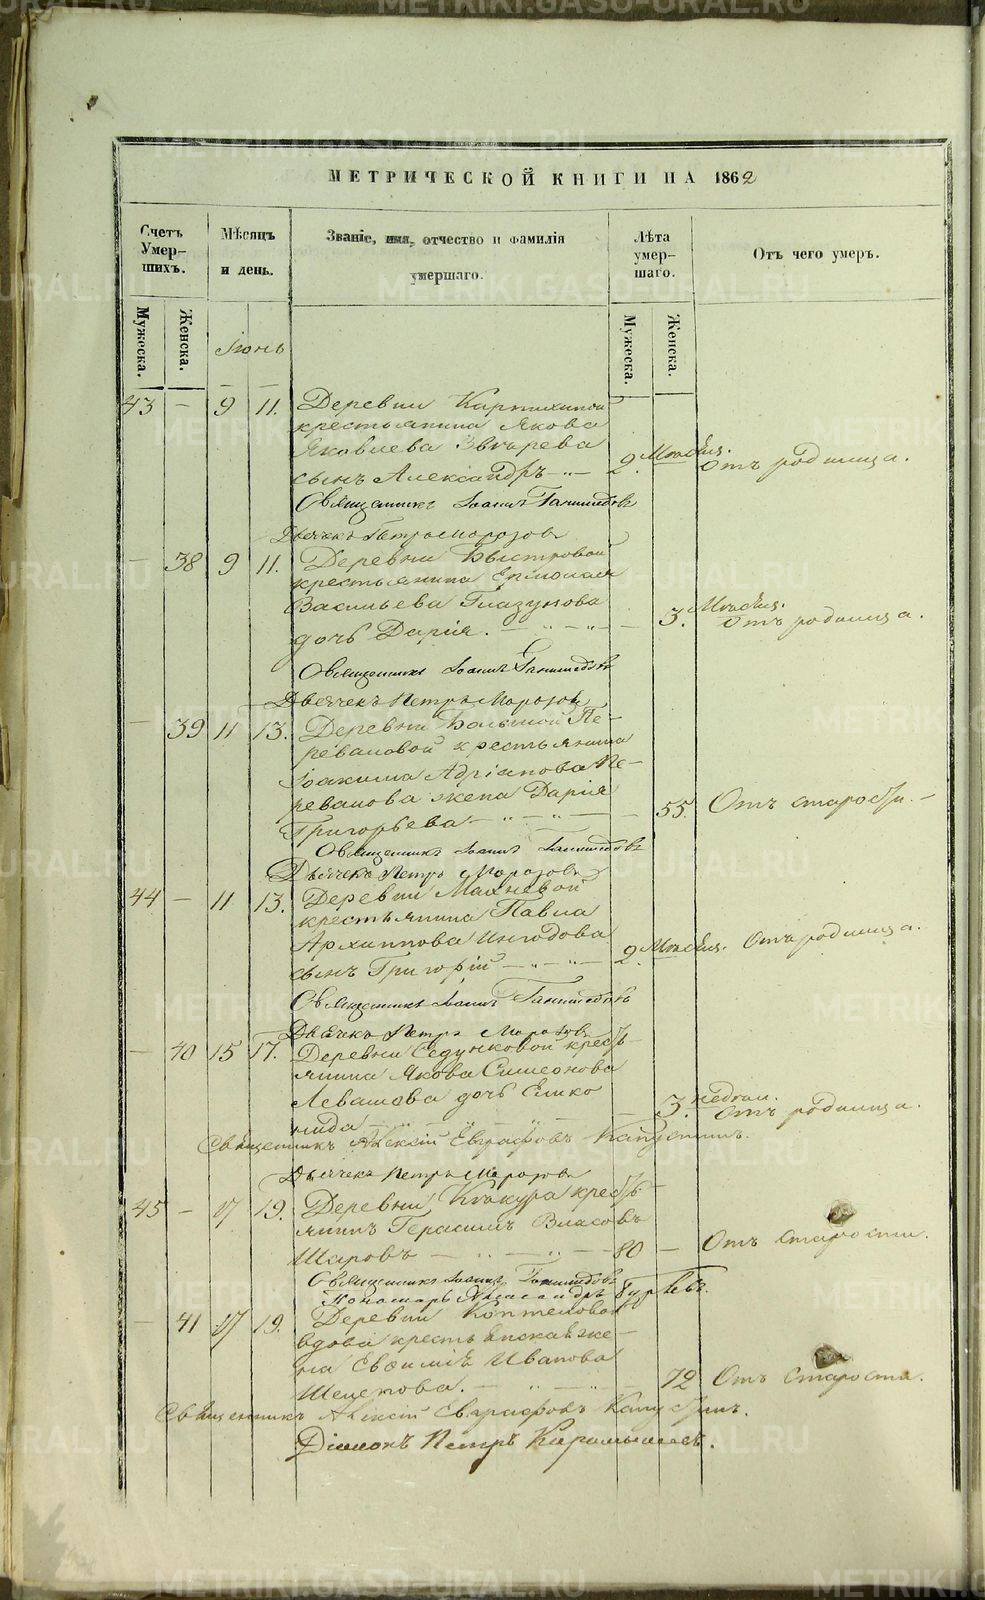 МЕТРИЧЕСКОЙ КНИГИ НА 1862
Счетъ Умер-шихъ.
Мѣсяцъ и день.
Званіе, имя, отчество и фамилія умершаго.
Лѣта умер-шаго.
Отъ чего умеръ.
Мужеска.
Женска.
Мужеска.
Женска.
Іюнь
43 — 9 11. Деревни
крестьянина Якова
Яковлева Звѣрева
сынъ Александръ — 2. Мѣсяц. Отъ родимца.
Священникъ Іоаннъ
Дьячекъ Петръ Морозовъ
— 38 9 11. Деревни Быстровой
крестьянина Ермолая
Васильева Глазунова
дочь Дарія. — 3. Мѣсяц. Отъ родимца.
Священникъ Іоаннъ
Дьячекъ Петръ Морозовъ
— 39 11 13. Деревни Большой Пе-
реваловой крестьянина
Іоакима Адріанова Пе-
ревалова жена Дарія
Григорьева — 55. Отъ старости. —
Священникъ Іоаннъ
Дьячекъ Петръ Морозовъ
44 — 11 13. Деревни Махневой
крестьянина Павла
Архиппова
сынъ Григорій — 2 Мѣсяц. Отъ родимца.
Священникъ Іоаннъ
Дьячекъ Петръ Морозовъ
— 40 15 17. Деревни Седунковой кресть-
янина Якова Симеонова
Левашова дочь
нида — 3. недѣли. Отъ родимца.
Священникъ Алексій Евграфовъ Капустинъ.
Дьячекъ Петръ Морозовъ
45 — 17 19. Деревни кресть-
янинъ Герасимъ Власовъ
Шаровъ — 80 — Отъ старости.
Священникъ Іоаннъ
Пономарь
— 41 17 19. Деревни Коптеловой
вдова крестьянская же-
на Евѳимія Иванова
— 72 Отъ старости.
Священникъ Алексій Евграфовъ Капустинъ.
Діаконъ Петръ